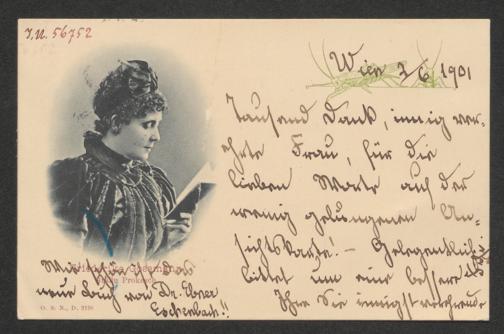 I.N. 56752
Wien 3/6 1901
Tausend Dank, innig ver-
ehrte Frau, für die
lieben Worte auf der
wenig gelungenen An-
sichtskarte! – Gelegentlich
bittet um eine bessere
Ihre Sie innigst verehrende
Friederike Gossmann
Prokesch
das
neue Buch von Dr. Ebner
Eschenbach!!